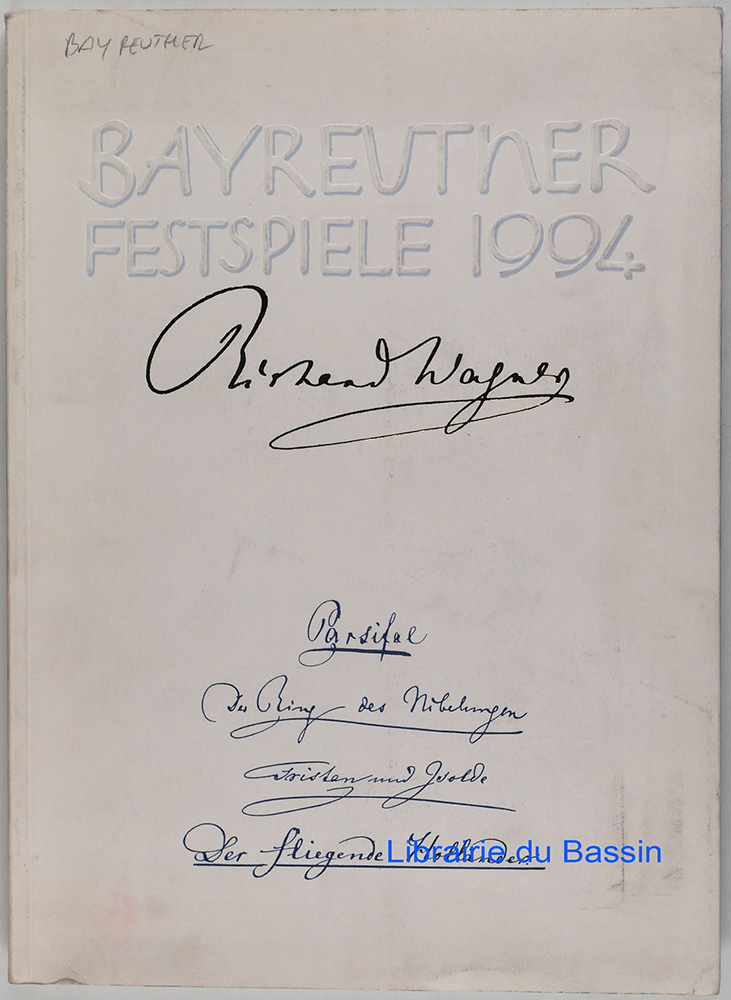 BAYREUTHER
BAYREUTHER
FESTSPIELE 1994
Richard Wagner
Parsifal
Der Ring des Nibelungen
Tristan und Isolde
Der fliegende Holländer
Librairie du Bassin